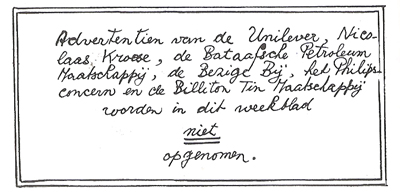 Advertentien van de Unilever, Nico-
laas Kroese, de Bataafsche Petroleum
Maatschappij, de Bezige Bij, het Philips-
concern en de Billiton Tin Maatschappij
worden in dit weekblad
niet
opgenomen.